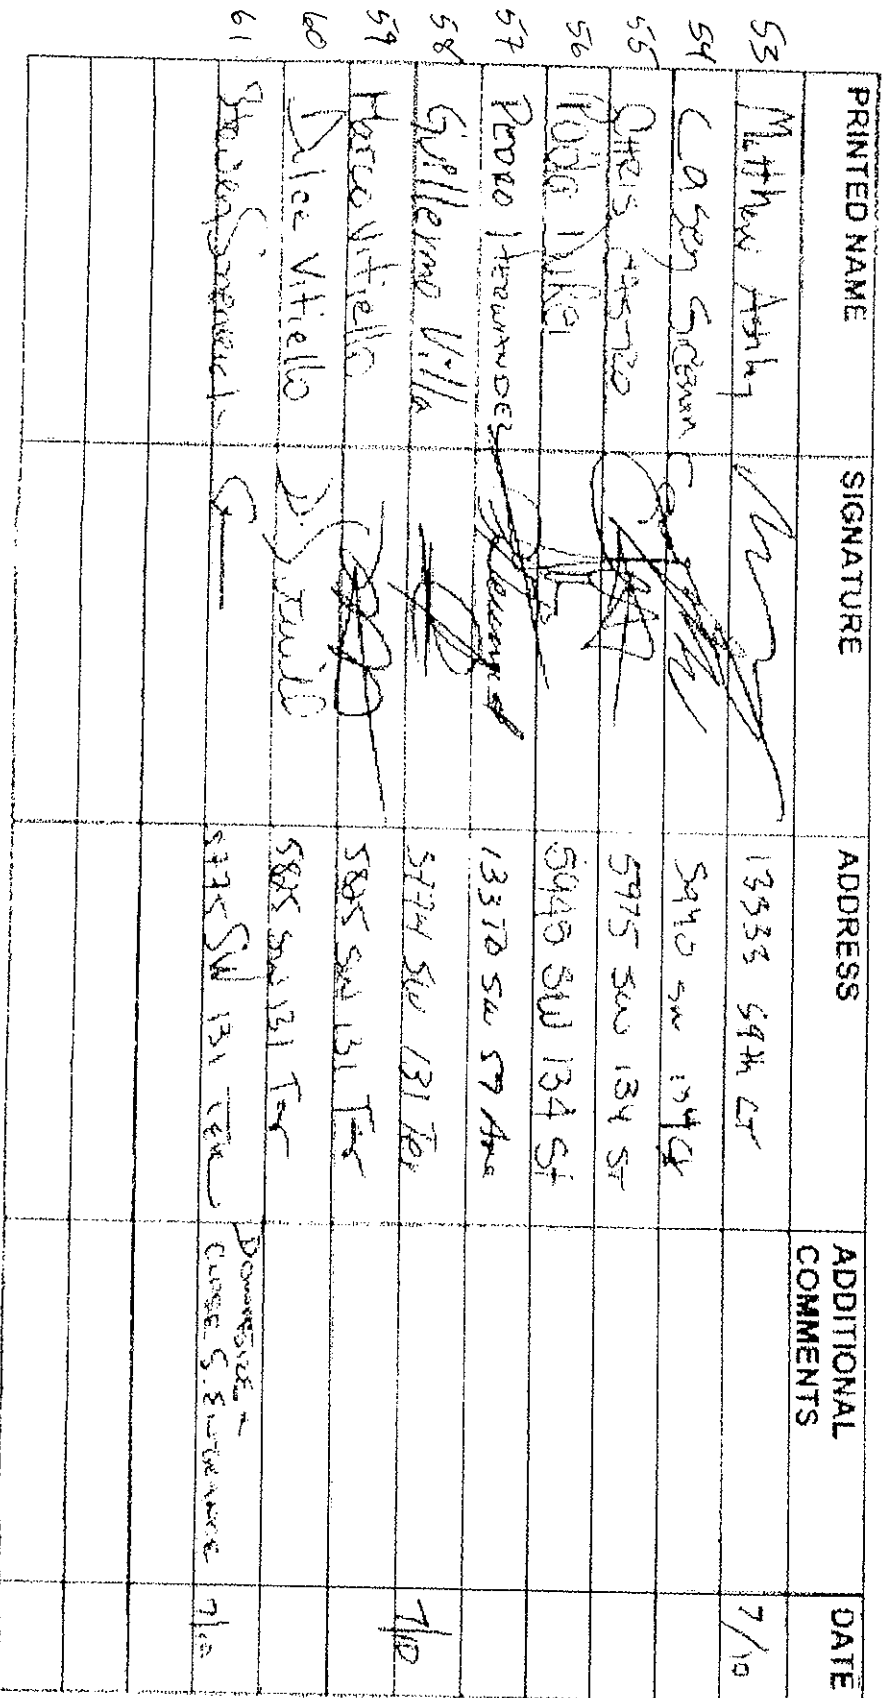 PRINTED NAME SIGNATURE ADDRESS ADDITIONAL COMMENTS DATE
53 Matthew Ashley 13333 59th CT 7/10
54 Casey 5940 SW
55 CHRIS CASTRO 5975 SW 134 ST
56 5945 SW 134 St
57 PEDRO HERNANDEZ 13370 SW 59 Ave
58 Guillermo Villa 5774 SW 131 Ter 7/10
59 Marco Vitiello 5805 SW 131 Ter
60 Dulce Vitiello D. Vitiello 5805 SW 131 Ter
61 Steven 5775 SW 131 TER DOWNSIZE + CLOSE S. ENTRANCE 7/10